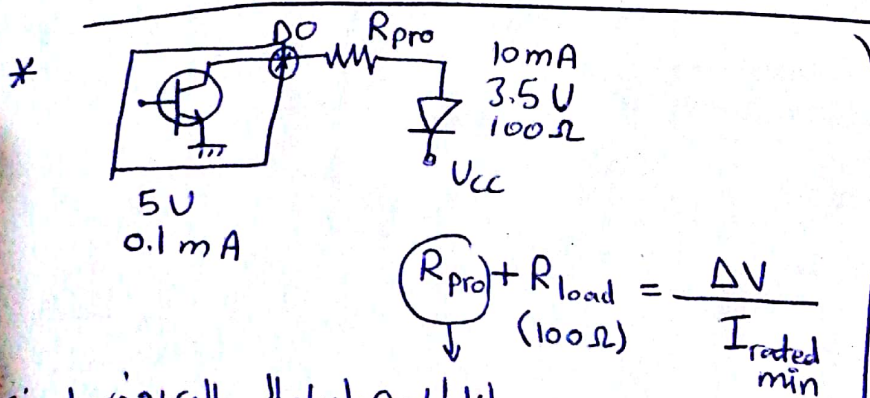 *
DO Rpro
10mA
3.5V
100Ω
Vcc
5V
0.1mA
Rpro + Rload = ΔV / Irated min
(100Ω)